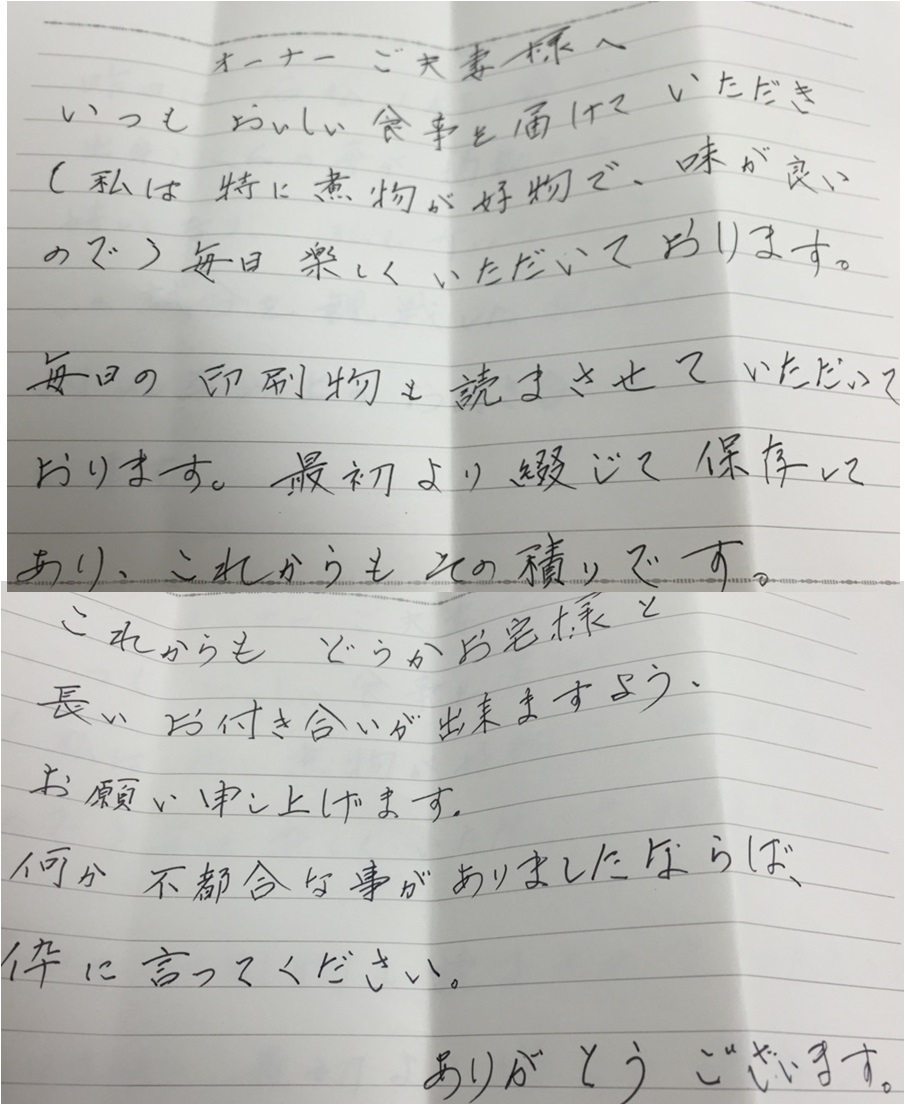 オーナー ご夫妻様へ
いつも おいしい 食事を届けて いただき
(私は 特に煮物が好物で、味が良い
ので)毎日 楽しく いただいて おります。
毎日の 印刷物も 読まさせて いただいて
おります。最初より綴じて保存して
あり、これからもその積りです。
これからも どうかお宅様と
長い お付き合いが出来ますよう、
お願い申し上げます。
何か 不都合な事がありましたならば、
伜に言ってください。
ありがとう ございます。